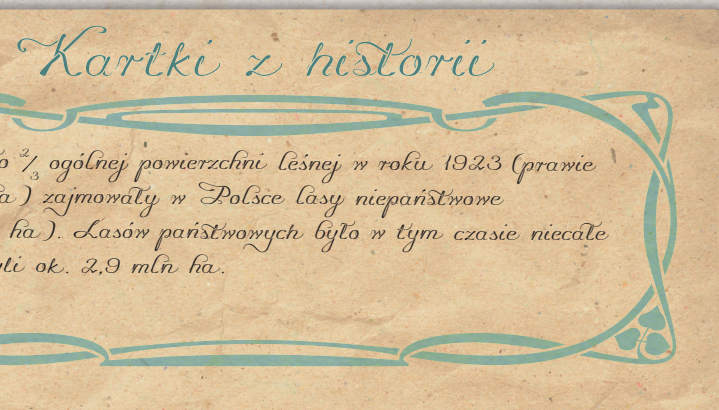 Kartki z historii
2/3 ogólnej powierzchni leśnej w roku 1923 (prawie
) zajmowały w Polsce lasy niepaństwowe
ha). Lasów państwowych było w tym czasie niecałe
ok. 2,9 mln ha.